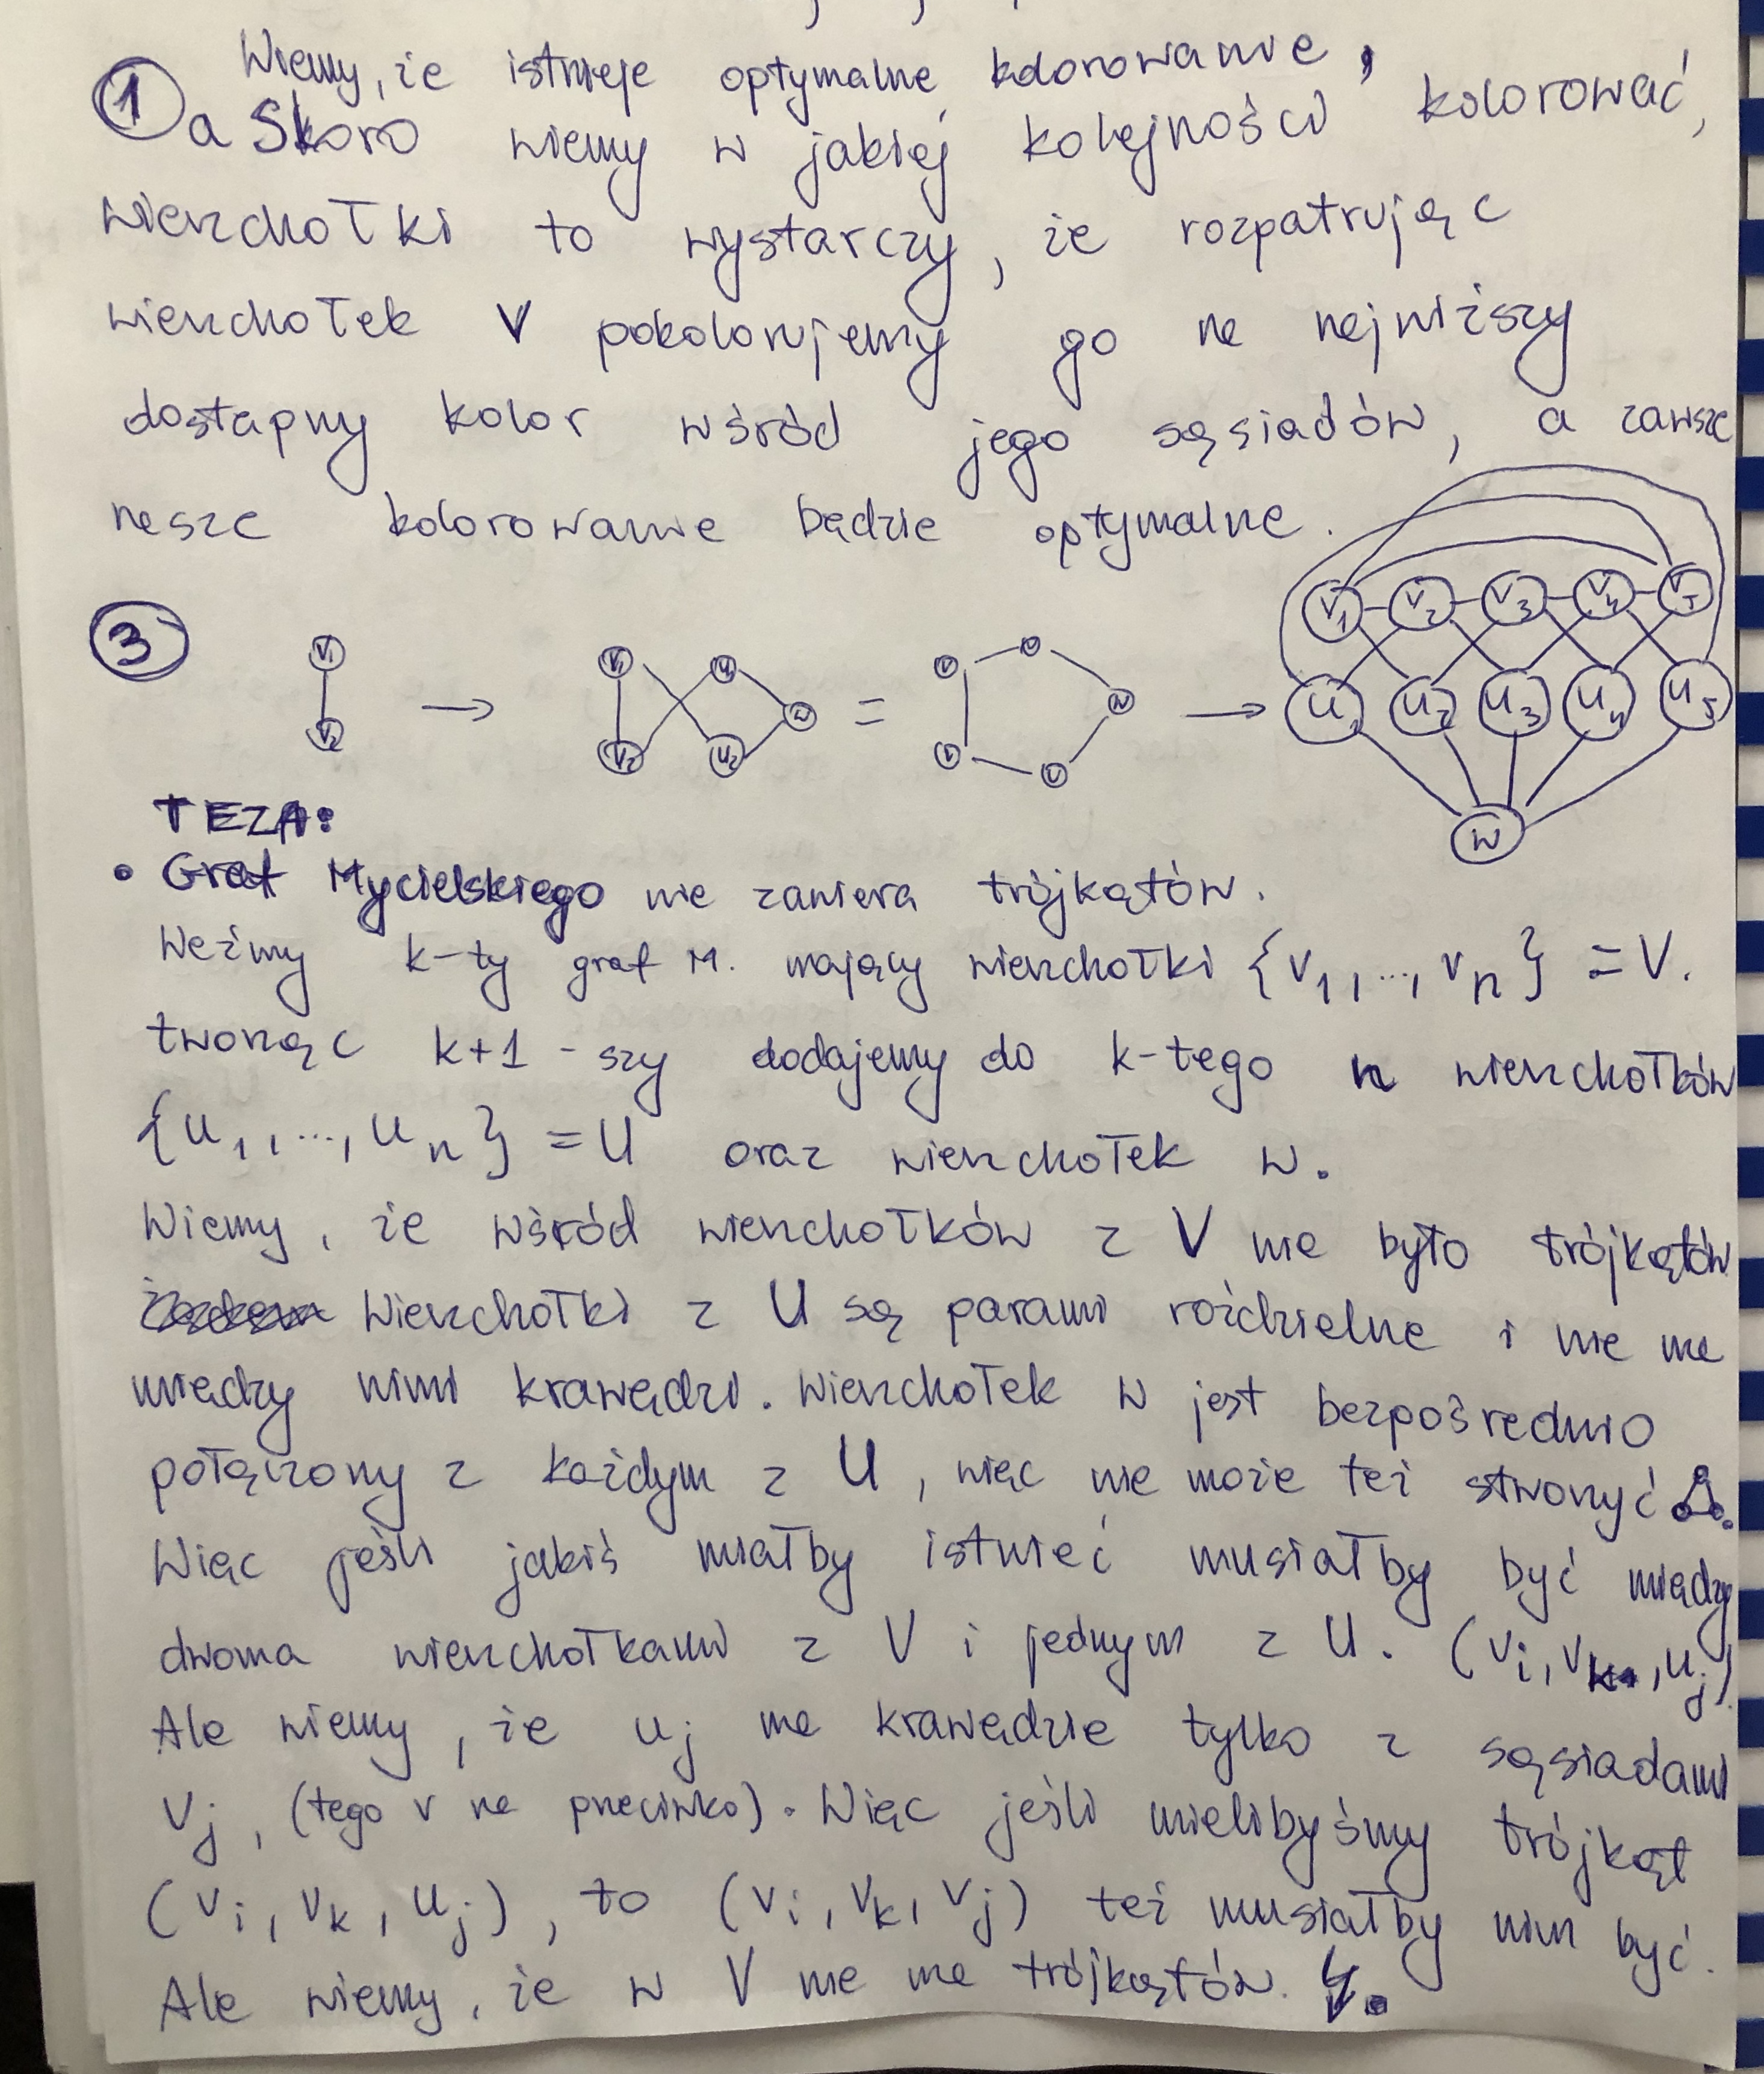 ① Wiemy, że istnieje optymalne kolorowanie,
a Skoro wiemy w jakiej kolejności kolorować,
wierzchołki to wystarczy, że rozpatrując
wierzchołek V pokolorujemy go na najniższy
dostępny kolor wśród jego sąsiadów, a zawsze
nasze kolorowanie będzie optymalne.
③ V1 V2 → V1 V2 U1 U2 W = V V U U W → V1 V2 V3 V4 V5
U1 U2 U3 U4 U5
W
TEZA:
• Graf Mycielskiego nie zawiera trójkątów.
Weźmy k-ty graf M. mający wierzchołki {v1, ..., vn} = V.
tworząc k+1 - szy dodajemy do k-tego n wierzchołków
{u1, ..., un} = U oraz wierzchołek w.
Wiemy, że wśród wierzchołków z V nie było trójkątów
Wierzchołki z U są parami rozdzielne i nie ma
między nimi krawędzi. Wierzchołek w jest bezpośrednio
połączony z każdym z U, więc nie może też stworzyć △.
Więc jeśli jakiś miałby istnieć musiałby być między
dwoma wierzchołkami z V i jednym z U. (vi, vk, uj)
Ale wiemy, że uj ma krawędzie tylko z sąsiadami
vj, (tego v na przeciwko). Więc jeśli mielibyśmy trójkąt
(vi, vk, uj), to (vi, vk, vj) też musiałby nim być.
Ale wiemy, że w V nie ma trójkątów. ↯.